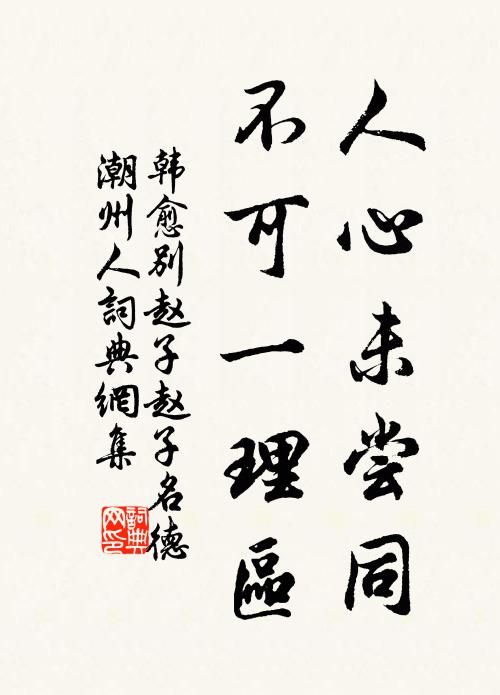 人心未尝同
不可一理區
韩愈别赵子赵子名德
潮州人詞典網集
詞典网印